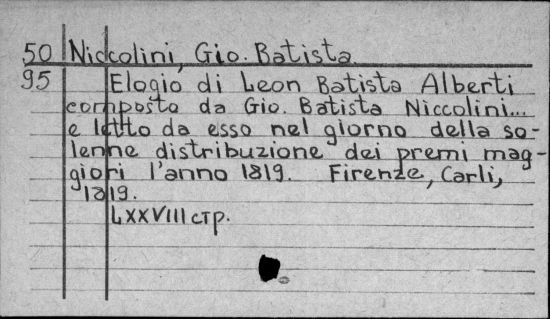 50 Niccolini, Gio. Batista
95 Elogio di Leon Batista Alberti
composto da Gio. Batista Niccolini...
e letto da esso nel giorno della so-
lenne distribuzione dei premi mag-
giori l'anno 1819. Firenze, Carli,
1819.
LXXVIII стр.